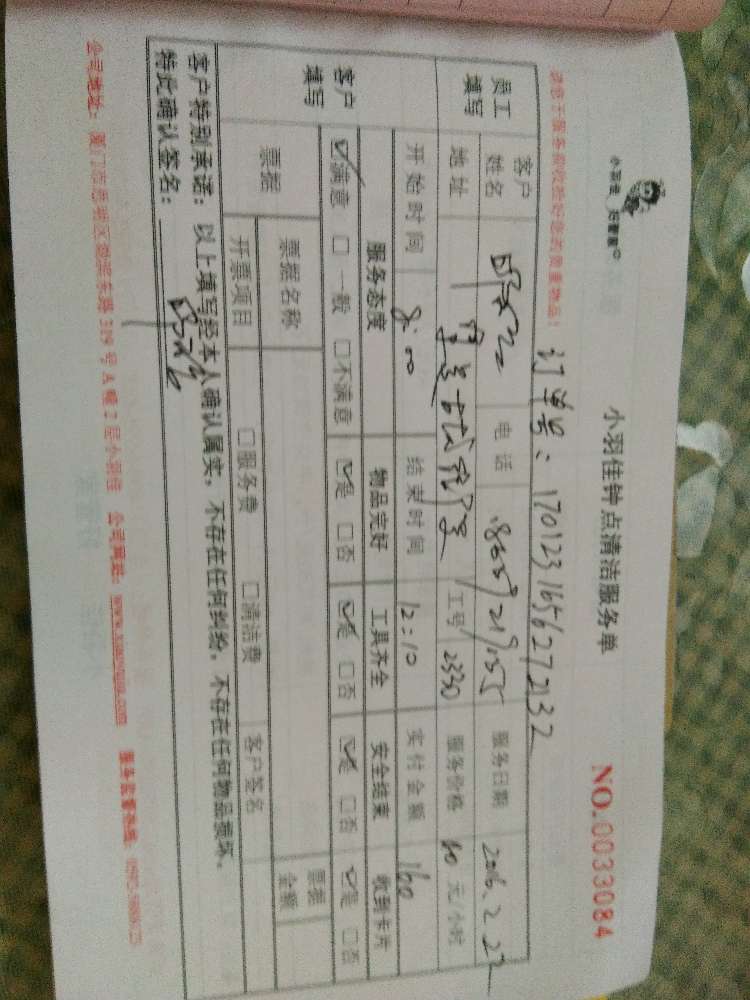 小羽佳 好管家
小羽佳钟点清洁服务单
NO.0033084
请您于服务前收捡好您的贵重物品！
订单号：17012316562721 32
员工填写 客户姓名 电话 服务日期
地址 工号 2330 服务价格 40 元/小时
开始时间 8:00 结束时间 12:10 实付金额 160
客户填写 服务态度 物品完好 工具齐全 安全结束 收到卡片
☑满意 □一般 □不满意 ☑是 □否 ☑是 □否 ☑是 □否 ☑是 □否
票据 票据名称 □服务费 □清洁费 票据金额
开票项目 客户签名
客户特别承诺：以上填写经本人确认属实，不存在任何纠纷，不存在任何物品损坏。
特此确认签名：
公司地址：厦门市思明区 319号A幢2层小羽佳 公司网址：www.xiaoyujia.com 服务监督热线：